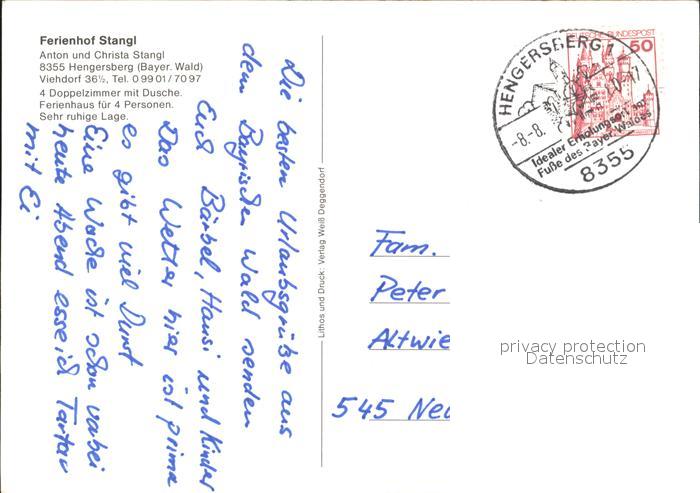 Ferienhof Stangl
Anton und Christa Stangl
8355 Hengersberg (Bayer. Wald)
Viehdorf 36½, Tel. 0 99 01 / 70 97
4 Doppelzimmer mit Dusche.
Ferienhaus für 4 Personen.
Sehr ruhige Lage.
Die besten Urlaubsgrüße aus
dem Bayrischen Wald senden
Euch Bärbel, Hansi und Kinder
Das Wetter hier ist prima
es gibt viel Durst
Eine Woche ist schon vorbei
heute Abend esse ich Tartar
mit Ei
Lithos und Druck: Verlag Weiß Deggendorf
DEUTSCHE BUNDESPOST
50
HENGERSBERG 1
-8.-8.
Idealer Erholungsort am
Fuße des Bayer. Waldes
8355
Fam.
Peter
Altwie
545 Neu
privacy protection
Datenschutz